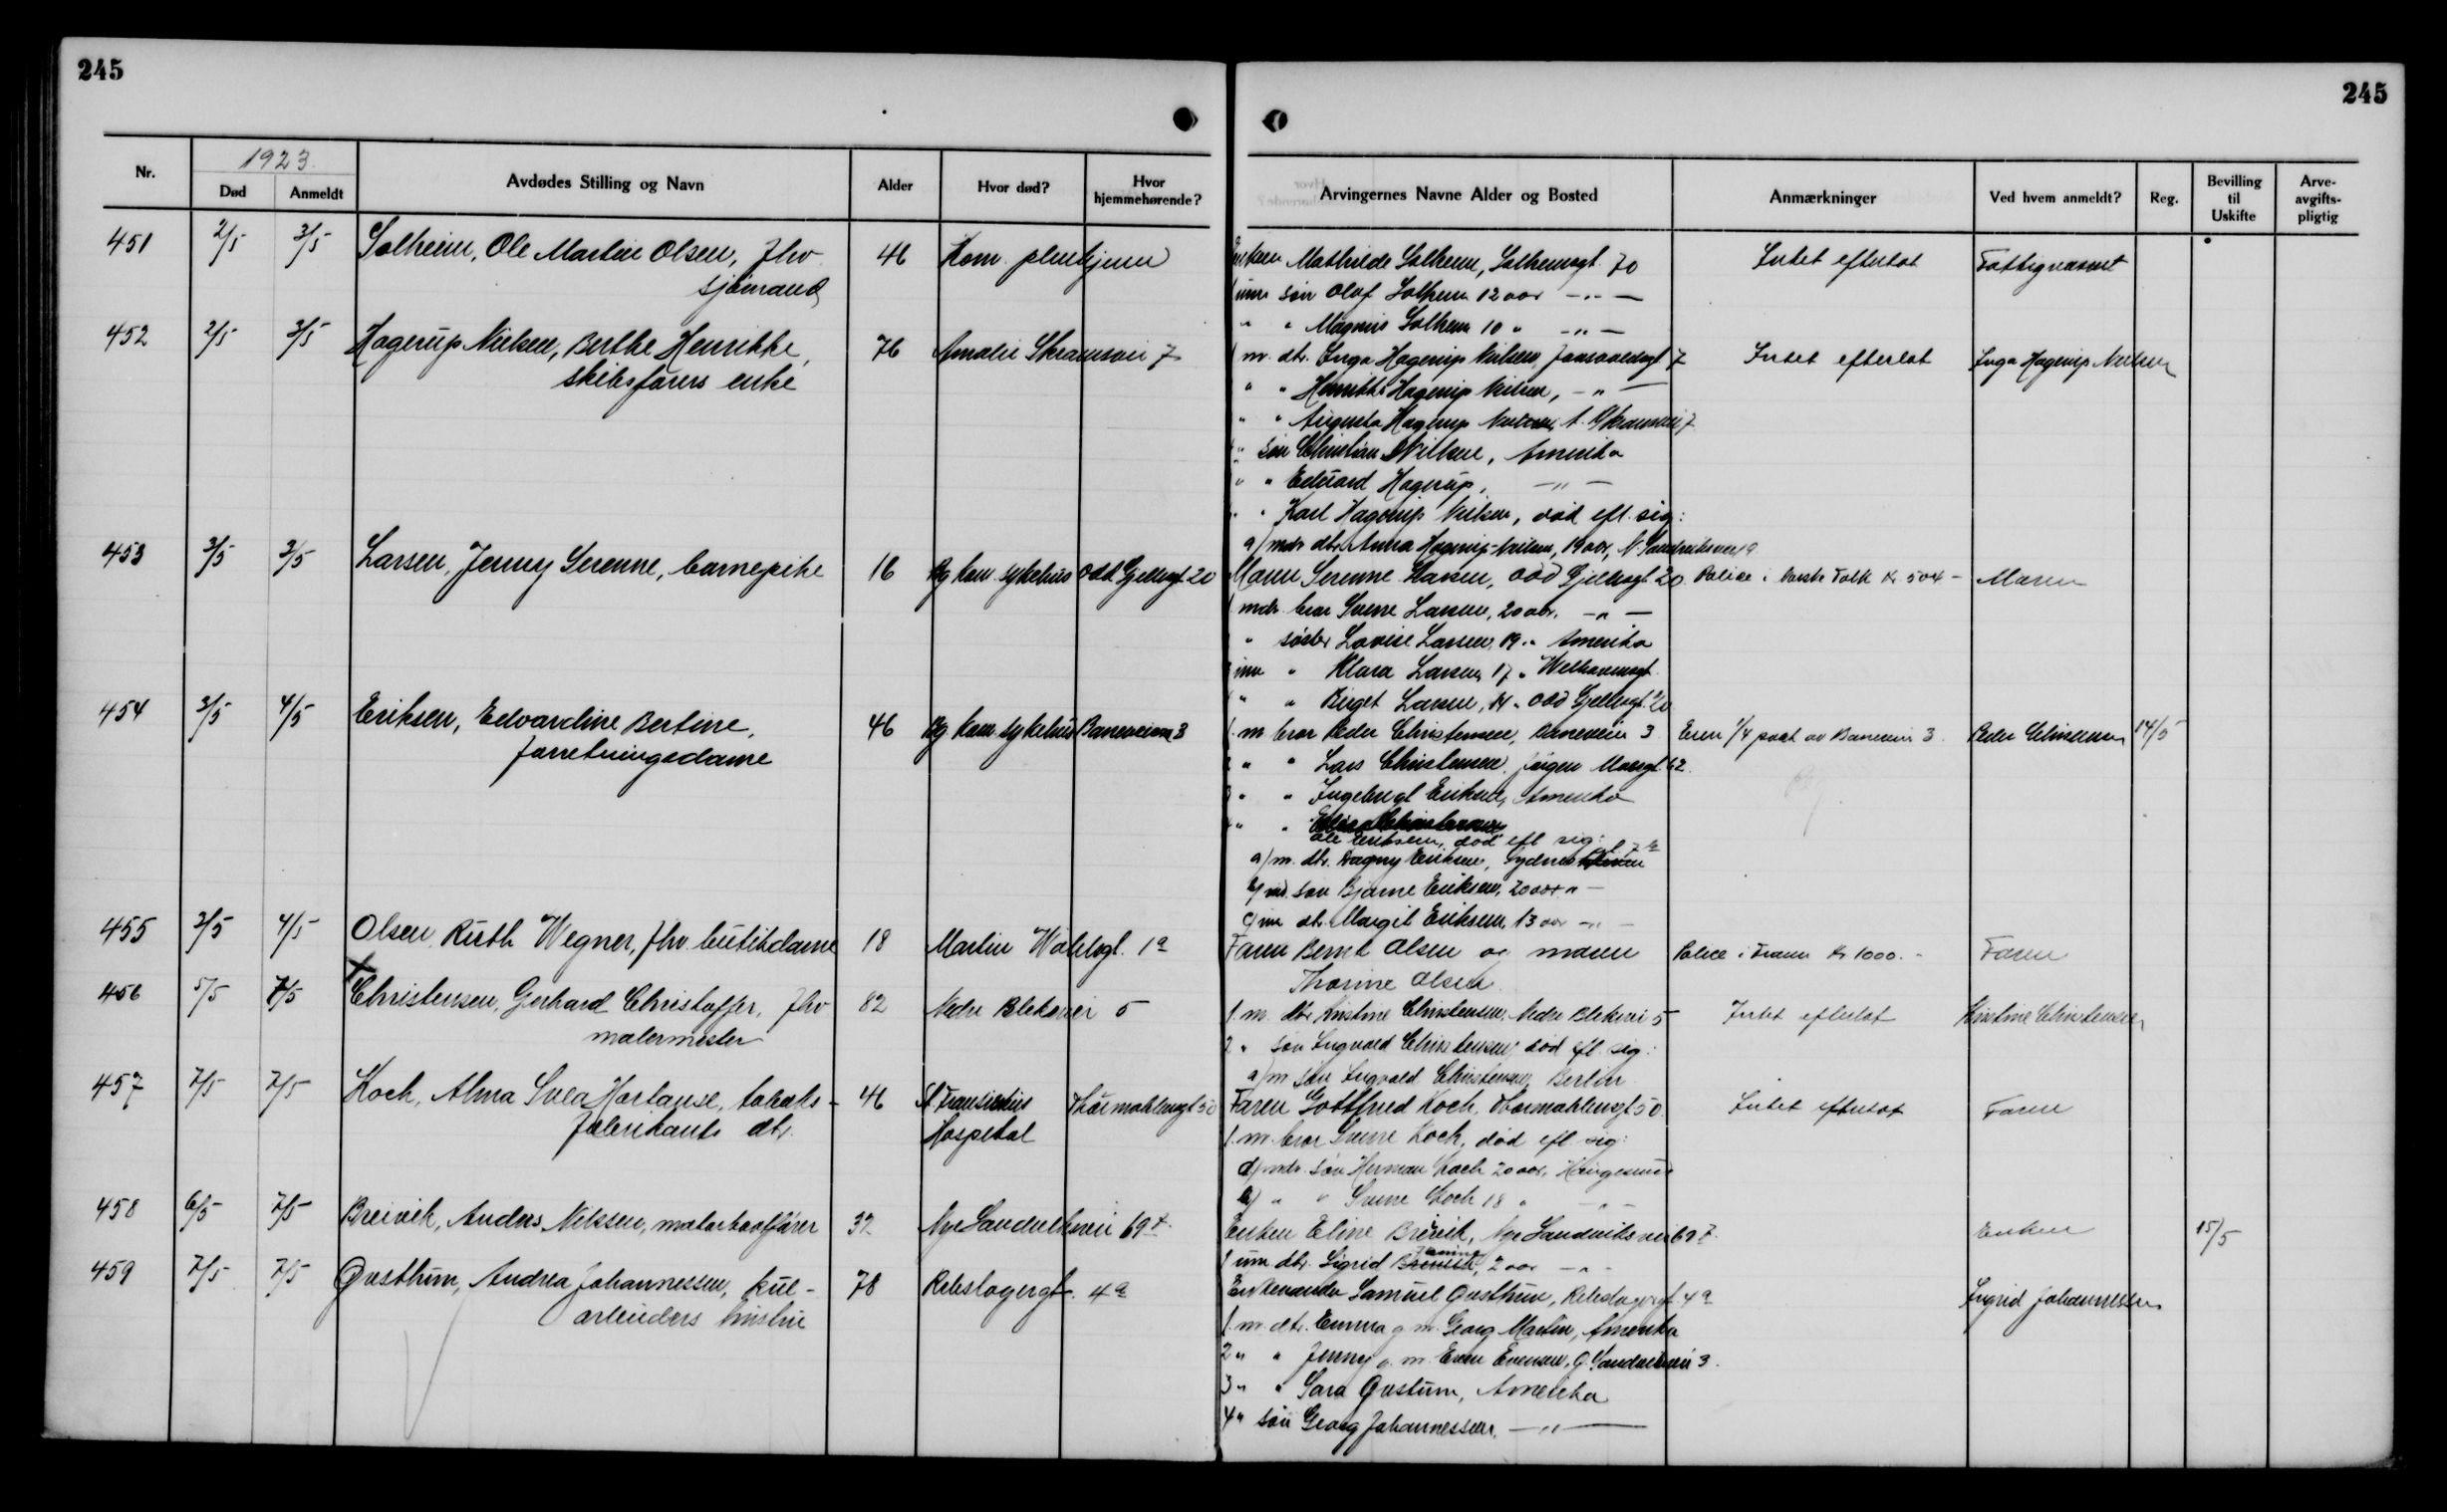 245
245
Nr.
1923.
Død
Anmeldt
Avdødes Stilling og Navn
Alder
Hvor død?
Hvor hjemmehørende?
Arvingernes Navne Alder og Bosted
Anmærkninger
Ved hvem anmeldt?
Reg.
Bevilling til Uskifte
Arve-avgifts-pligtig
451 2/5 3/5 Solheim, Ole Martin Olsen, fhv. 46 Kom. pleiehjem
sjømand
Enken Mathilde Solheim, Solheimsgt. 70 Intet efterlot Fattigvæsenet
1 umn søn Olaf Solheim 12 aar —"—
" " Magnus Solheim 10 " —"—
452 2/5 3/5 Hagerup Nielsen, Berthe Henrikke, 76 Amalie Skramsvei 7
skibsførers enke
1 m. dtr. Inga Hagerup Nielsen, 7 Intet efterlot Inga Hagerup Nielsen
" " Henrikke Hagerup Nielsen, —"—
" " Augusta Hagerup Nielsen, A. Skramsvei 7
" søn Christian Nielsen, Amerika
" " Edvard Hagerup, —"—
" " Karl Hagerup Nielsen, død eft. sig:
a/ mdr dtr. Anna Hagerup-Nielsen, 19 aar, N. Sandviksvei 19
453 3/5 3/5 Larsen, Jenny Serenne, barnepike 16 Bg. kom. sykehus Odd Gjellesgt. 20
Moren Serenne Larsen, Odd Gjellesgt. 20 Police i Norske Folk Kr. 504 - Moren
1 mdr. bror Sverre Larsen, 20 aar. —"—
" søster Lovise Larsen, 19 " Amerika
3 umn " Klara Larsen, 17 " Welhavensgt.
" " Birget Larsen, 14 " Odd Gjellesgt. 20
454 3/5 4/5 Eriksen, Edvardine Bertine, 46 Bg. kom. sykehus Baneveien 3
forretningsdame
1. m. bror Peder Christensen, Banevein 3 Eier 1/4 part av Banevein 3. Peder Christensen 14/5
2 " " Lars Christensen, Jørgen Moesgt. 62.
3 " " Ingebrigt Eriksen, Amerika
" " Ole Eriksen, død eft. sig:
a/ m. dtr. Dagny Eriksen,
b/ md. søn Bjarne Eriksen, 20 aar " —
c/ um dtr. Margit Eriksen, 13 aar —"—
455 3/5 4/5 Olsen, Ruth Wegner, fhv. butikdame 18 Martin Wahlsgt. 1a
Faren Bernt Olsen og moren Police i Fram Kr. 1000.- Faren
Thorine Olsen.
456 5/5 7/5 Christensen, Gerhard Christoffer, fhv. 82 Nedre Blekevei 5
malermester
1. m. dtr. Kristine Christensen, Nedre Blekevei 5 Intet efterlot Kristine Christensen
2 " søn Ingvald Christensen, død eft. sig:
a/ m søn Ingvald Christensen, Berlin
457 7/5 7/5 Koch, Alma Svea Hortanse, tobaks- 46 St. Fransiskus Thormøhlensgt. 50
fabrikants dtr. Hospital
Faren Gottfred Koch, Thormøhlensgt. 50. Intet efterlot Faren
1. m. bror Sverre Koch, død eft. sig:
a/ mdr. søn Herman Koch 20 aar, Haugesund
b/ " " Sverre Koch 18 " —"—
458 6/5 7/5 Breivik, Anders Nilssen, motorbaatfører 32 Nye Sandviksvei 69
Enken Eline Breivik, Nye Sandviksvei 69 Enken 15/5
1 um dtr. Sigrid Breivik, 2 aar —"—
459 7/5 7/5 Qvasthum, Andrea Johannessen, kul- 78 Rebslagergt. 4a
arbeiders hustru
Enkemanden Samuel Qvasthum, Rebslagergt. 4a Sigrid Johannessen
1. m. dtr. Emma g. m. Georg Martin, Amerika
2 " " Jenny g. m. Even Evensen, G. Sandviksvei 3.
3 " " Sara Qvastum, Amerika
4 " søn Georg Johannessen —"—